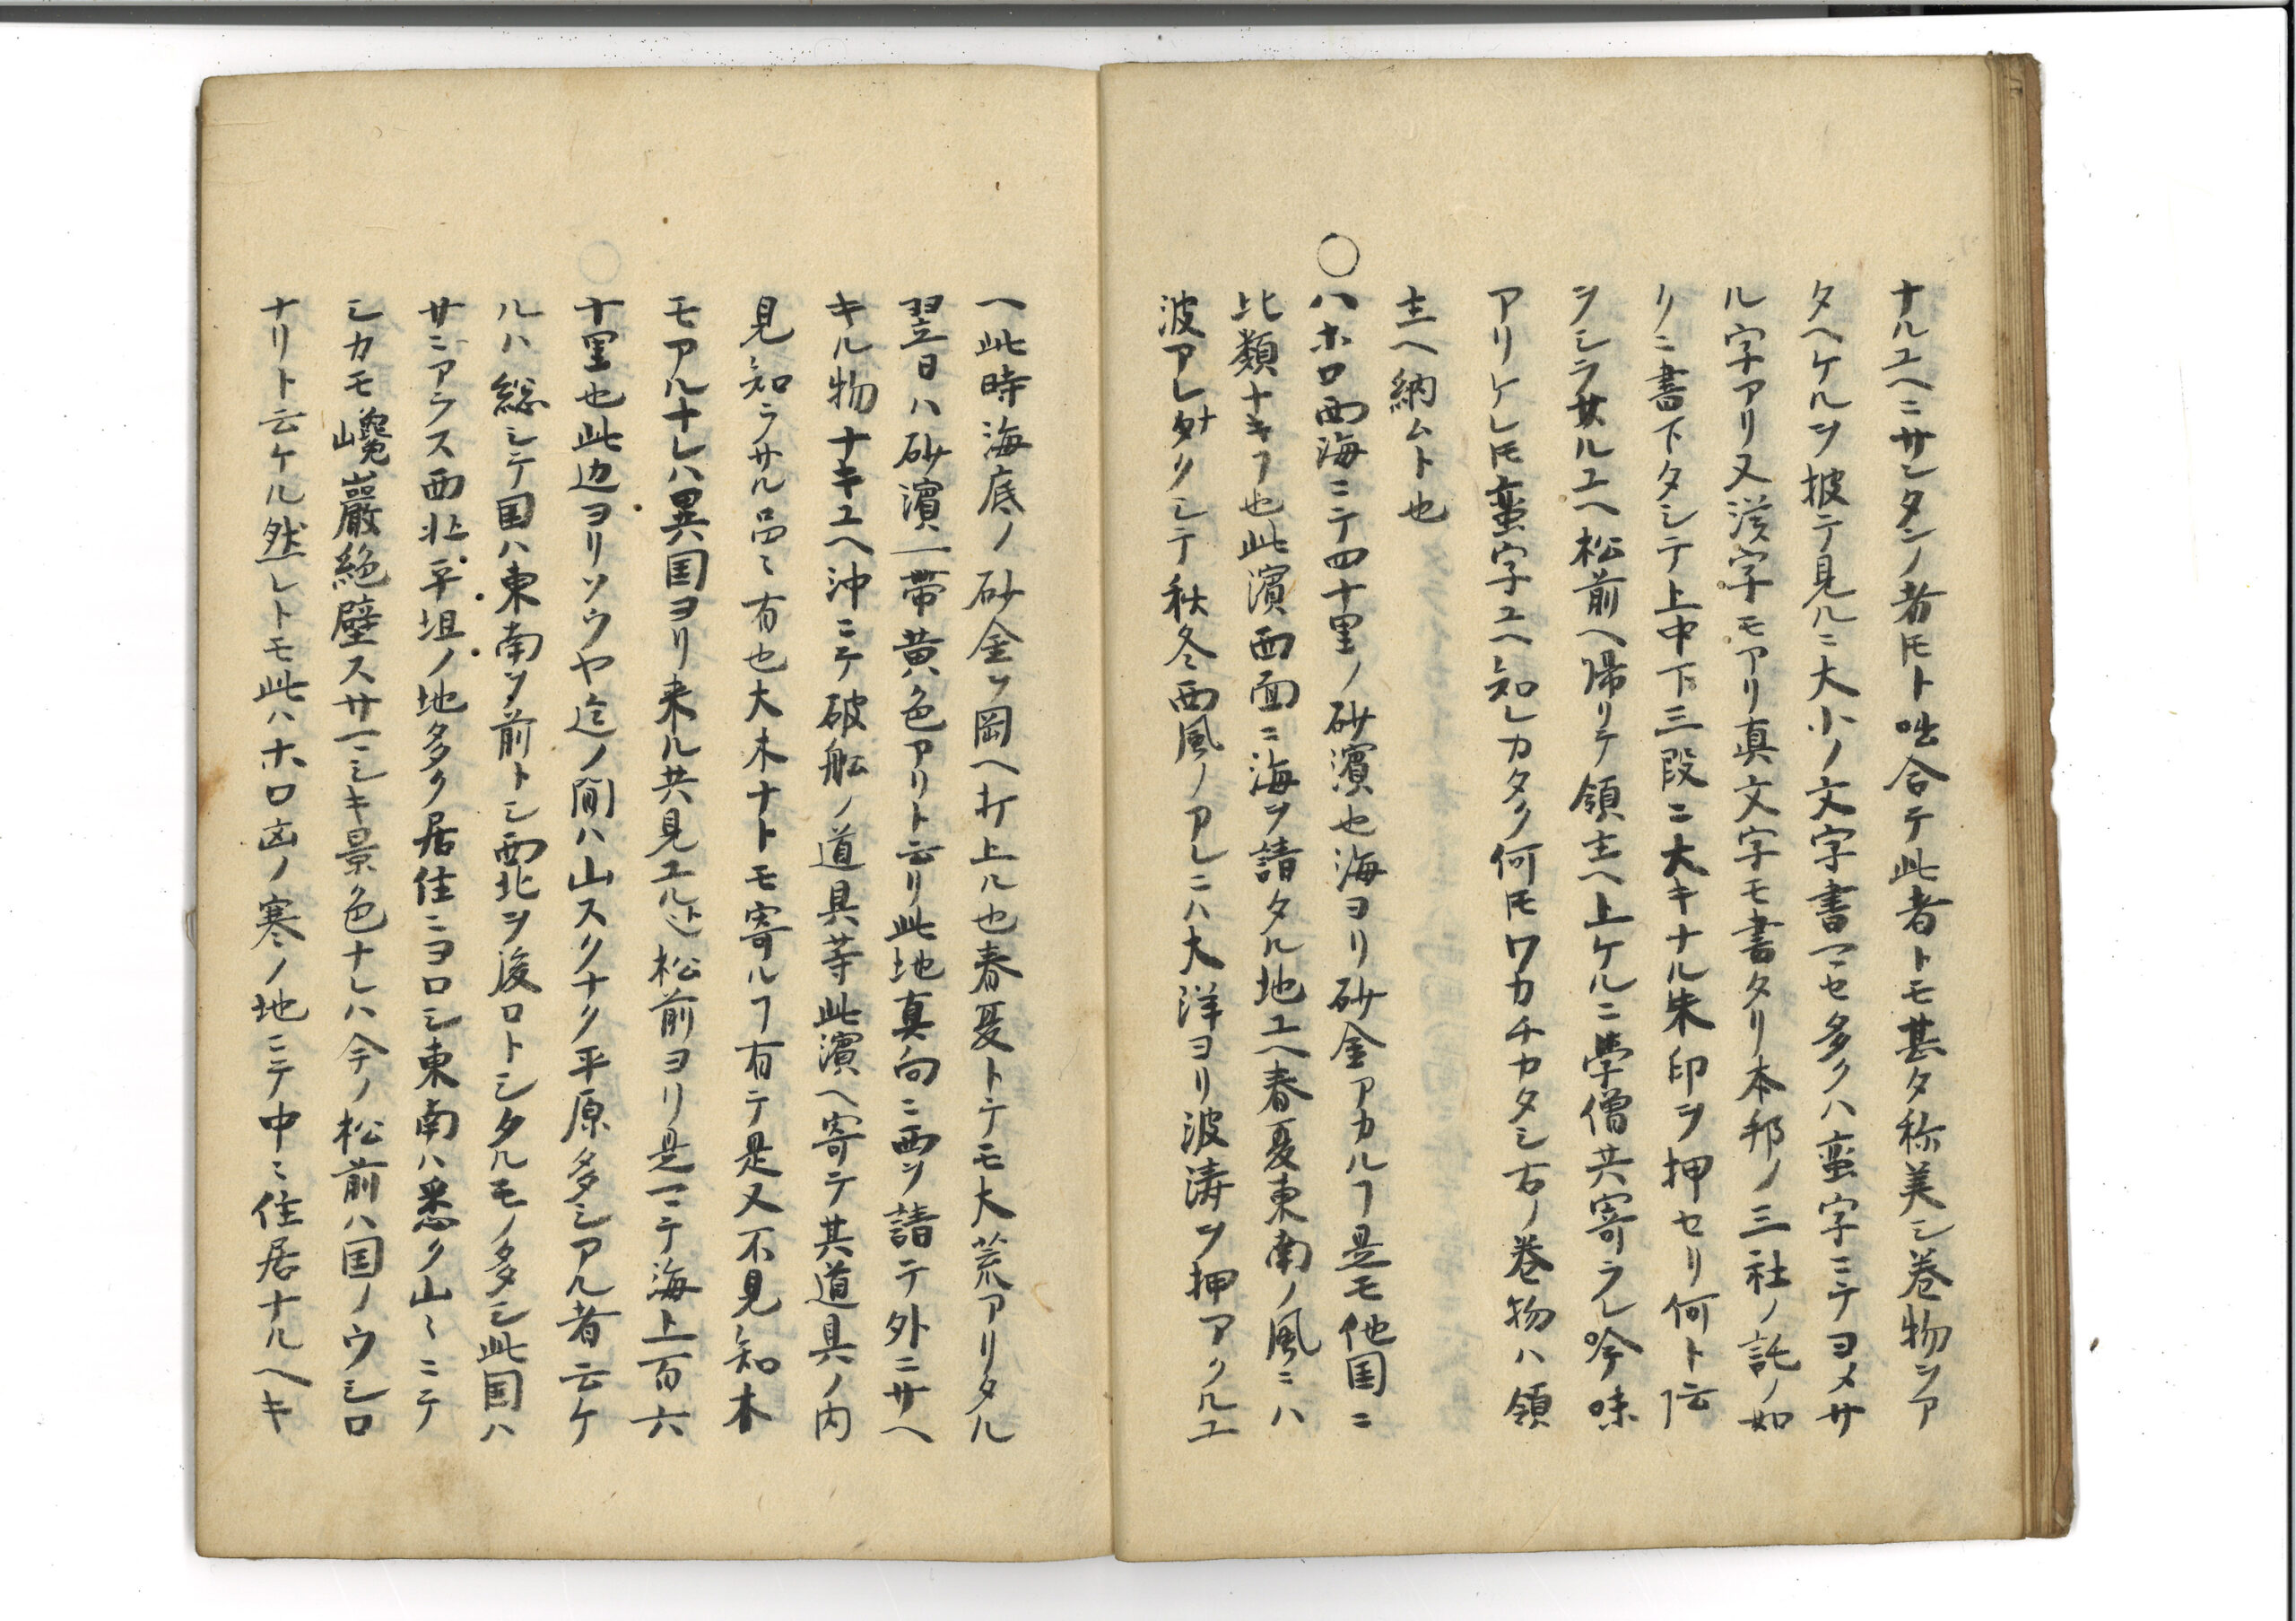 ナルユヘニサンタンノ者𪜈ト咄合テ此者トモ甚タ称美シ巻物ヲア
タヘケルヲ披テ見ルニ大小ノ文字書マセ多クハ蛮字ニテヨメサ
ル字アリ又漢字モアリ真文字モ書タリ本邦ノ三社ノ託ノ如
クニ書下タシテ上中下三段ニ大キナル朱印ヲ押セリ何ト云
ヲシラサルユヘ松前ヘ帰リテ領主ヘ上ケルニ学僧共寄ラレ吟味
アリケレ𪜈蛮字ユヘ知レカタク何𪜈ワカチカタシ右ノ巻物ハ領
主ヘ納ムト也
○ハホロ西海ニテ四十里ノ砂濱也海ヨリ砂金アカルヿ是モ他国ニ
比類ナキヿ也此濱西面ニ海ヲ請タル地ユヘ春夏東南ノ風ニハ
波アレナクシテ秋冬西風ノアレニハ大洋ヨリ波涛ヲ押アクルユ
ヘ此時海底ノ砂金ヲ岡ヘ打上ル也春夏トテモ大荒アリタル
翌日ハ砂濱一帯黄色アリト云リ此地真向ニ西ヲ請テ外ニサヘ
キル物ナキユヘ沖ニテ破船ノ道具等此濱ヘ寄テ其道具ノ内
見知ラサル品ミ有也大木ナトモ寄ルヿ有テ是又不見知木
モアルナレハ異国ヨリ来ル共見エル也松前ヨリ是マテ海上百六
十里也此辺ヨリソウヤ迄ノ間ハ山スクナク平原多シアル者云ケ
ルハ総シテ国ハ東南ヲ前トシ西北ヲ後ロトシタルモノ多シ此国ハ
サニアラス西北平坦ノ地多ク居住ニヨロシ東南ハ悉ク山〻ニテ
シカモ巉巖絶壁スサマシキ景色ナレハ今ノ松前ハ国ノウシロ
ナリト云ケル然レトモ此ハホロ迄ノ寒ノ地ニテ中ミ住居ナルヘキ